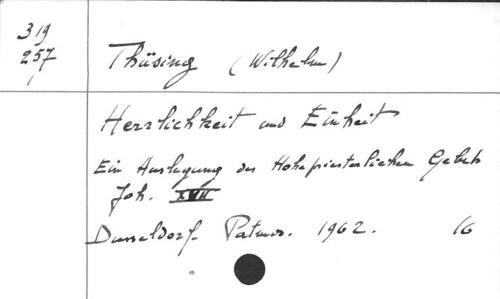 319
257
1
Thüsing (Wilhelm)
Herrlichkeit und Einheit
Ein Auslegung des Hohepriesterlichen Gebets
Joh. XVII
Dusseldorf. Patmos. 1962. 16